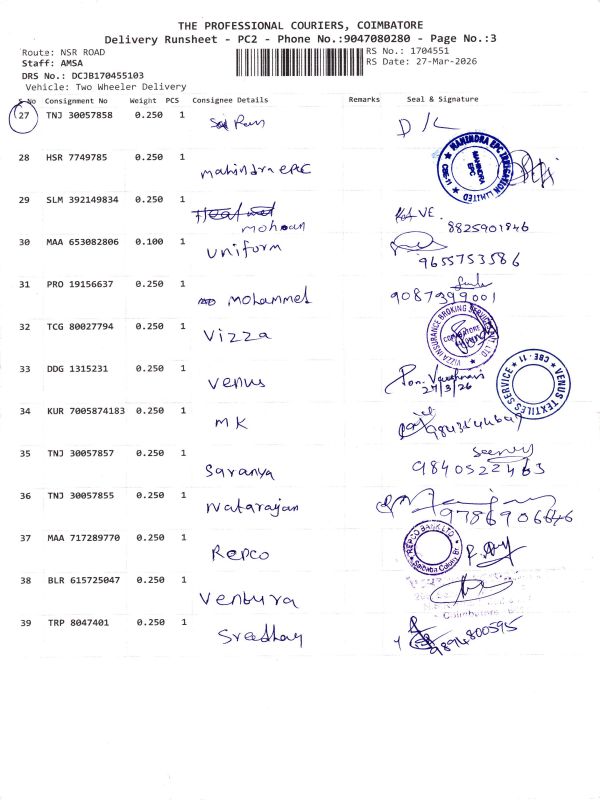 THE PROFESSIONAL COURIERS, COIMBATORE
Delivery Runsheet - PC2 - Phone No.:9047080280 - Page No.:3
Route: NSR ROAD RS No.: 1704551
Staff: AMSA RS Date: 27-Mar-2026
DRS No.: DCJB170455103
Vehicle: Two Wheeler Delivery
S No Consignment No Weight PCS Consignee Details Remarks Seal & Signature
27 TNJ 30057858 0.250 1
28 HSR 7749785 0.250 1 mahindra EPC MAHINDRA EPC IRRIGATION LIMITED MAHINDRA EPC CBE-11
29 SLM 392149834 0.250 1 mohan VE. 8825901846
30 MAA 653082806 0.100 1 Uniform 9655753586
31 PRO 19156637 0.250 1 mohammed 9087399001
32 TCG 80027794 0.250 1 Vizza VIZZA INSURANCE BROKING SERVICES
33 DDG 1315231 0.250 1 Venus 27/3/26 VENUS TEXTILES SERVICE CBE-11
34 KUR 7005874183 0.250 1 MK
35 TNJ 30057857 0.250 1 Saranya 9840522463
36 TNJ 30057855 0.250 1 Natarajan
37 MAA 717289770 0.250 1 Repco REPCO BANK LTD Saibaba Colony Br
38 BLR 615725047 0.250 1 Ventura Coimbatore
39 TRP 8047401 0.250 1 Sreedhar 9894800595